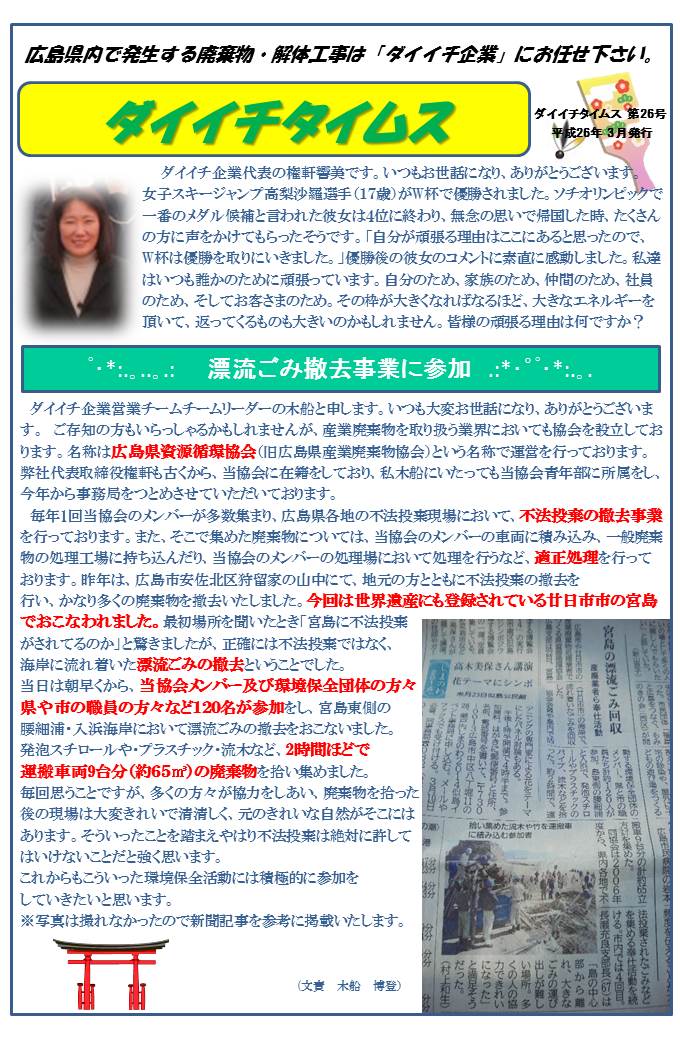 広島県内で発生する廃棄物・解体工事は「ダイイチ企業」にお任せ下さい。
ダイイチタイムス
ダイイチタイムス 第26号
平成26年 3月発行
ダイイチ企業代表の権軒響美です。いつもお世話になり、ありがとうございます。
女子スキージャンプ高梨沙羅選手(17歳)がW杯で優勝されました。ソチオリンピックで
一番のメダル候補と言われた彼女は4位に終わり、無念の思いで帰国した時、たくさん
の方に声をかけてもらったそうです。「自分が頑張る理由はここにあると思ったので、
W杯は優勝を取りにいきました。」優勝後の彼女のコメントに素直に感動しました。私達
はいつも誰かのために頑張っています。自分のため、家族のため、仲間のため、社員
のため、そしてお客さまのため。その枠が大きくなればなるほど、大きなエネルギーを
頂いて、返ってくるものも大きいのかもしれません。皆様の頑張る理由は何ですか？
ﾟ･*:.｡..｡.: 漂流ごみ撤去事業に参加 .:*･ﾟﾟ･*:.｡.
ダイイチ企業営業チームチームリーダーの木船と申します。いつも大変お世話になり、ありがとうございま
す。 ご存知の方もいらっしゃるかもしれませんが、産業廃棄物を取り扱う業界においても協会を設立してお
ります。名称は広島県資源循環協会(旧広島県産業廃棄物協会)という名称で運営を行っております。
弊社代表取締役権軒も古くから、当協会に在籍をしており、私木船にいたっても当協会青年部に所属をし、
今年から事務局をつとめさせていただいております。
毎年1回当協会のメンバーが多数集まり、広島県各地の不法投棄現場において、不法投棄の撤去事業
を行っております。また、そこで集めた廃棄物については、当協会のメンバーの車両に積み込み、一般廃棄
物の処理工場に持ち込んだり、当協会のメンバーの処理場において処理を行うなど、適正処理を行って
おります。昨年は、広島市安佐北区狩留家の山中にて、地元の方とともに不法投棄の撤去を
行い、かなり多くの廃棄物を撤去いたしました。今回は世界遺産にも登録されている廿日市市の宮島
でおこなわれました。最初場所を聞いたとき「宮島に不法投棄
がされてるのか」と驚きましたが、正確には不法投棄ではなく、
海岸に流れ着いた漂流ごみの撤去ということでした。
当日は朝早くから、当協会メンバー及び環境保全団体の方々
県や市の職員の方々など120名が参加をし、宮島東側の
腰細浦・入浜海岸において漂流ごみの撤去をおこないました。
発泡スチロールや・プラスチック・流木など、2時間ほどで
運搬車両9台分（約65㎥）の廃棄物を拾い集めました。
毎回思うことですが、多くの方々が協力をしあい、廃棄物を拾った
後の現場は大変きれいで清清しく、元のきれいな自然がそこには
あります。そういったことを踏まえやはり不法投棄は絶対に許して
はいけないことだと強く思います。
これからもこういった環境保全活動には積極的に参加を
していきたいと思います。
※写真は撮れなかったので新聞記事を参考に掲載いたします。
（文責 木船 博登）
宮島の漂流ごみ回収
産廃業者ら奉仕活動
高木美保さん講演
花テーマにシンポ
拾い集めた流木や竹を運搬車
に積み込む参加者
法投棄されたごみなど
を集める奉仕活動を続
ける。市内では4回目。
長瀬充良支部長(67)は
「島の中心
部から離
れ、大きな
ごみの運び
出しが難し
い場所。多
くの人の協
力できれい
になった」
と満足そう
だった。
(村上和生)